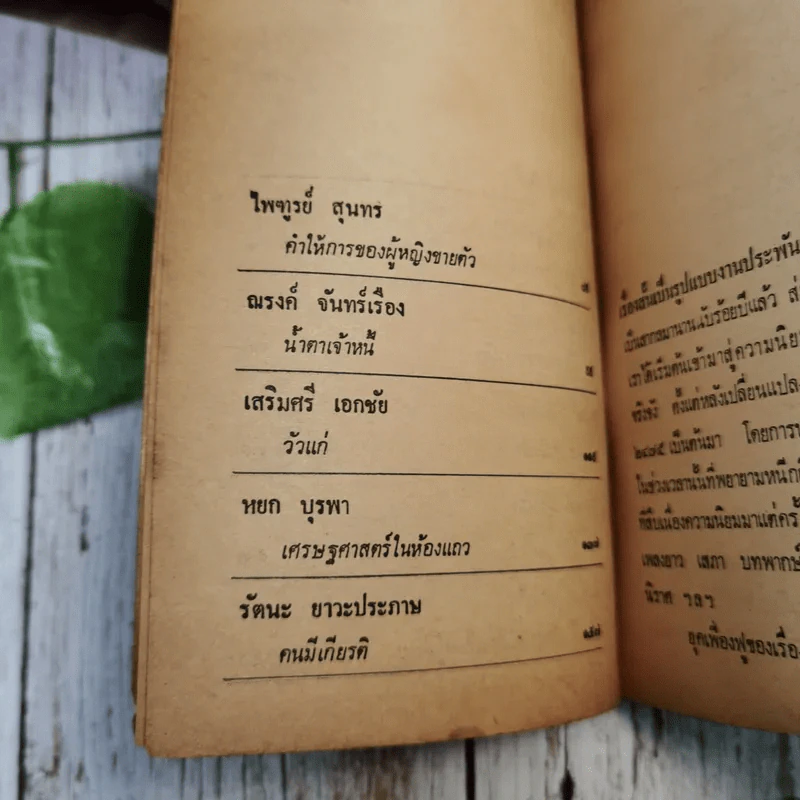 ไพฑูรย์ สุนทร
คำให้การของผู้หญิงขายตัว
ณรงค์ จันทร์เรือง
น้ำตาเจ้าหนี้
เสริมศรี เอกชัย
วัวแก่
หยก บุรพา
เศรษฐศาสตร์ในห้องแถว ๑๓๗
รัตนะ ยาวะประภาษ
คนมีเกียรติ ๑๕๗
เรื่องสั้นเป็นรูปแบบงานประพัน
เป็นสากลมานานนับร้อยปีแล้ว
เราได้เริ่มต้นเข้ามาสู่ความนิย
จริงจัง ตั้งแต่หลังเปลี่ยนแปลง
๒๔๗๕ เป็นต้นมา โดยการ
ในช่วงเวลานั้นที่พยายามหนีก
ที่สืบเนื่องความนิยมมาแต่ครั้
เพลงยาว เสภา บทพากย์
นิราศ ฯลฯ
ยุคเฟื่องฟูของเรื่อง